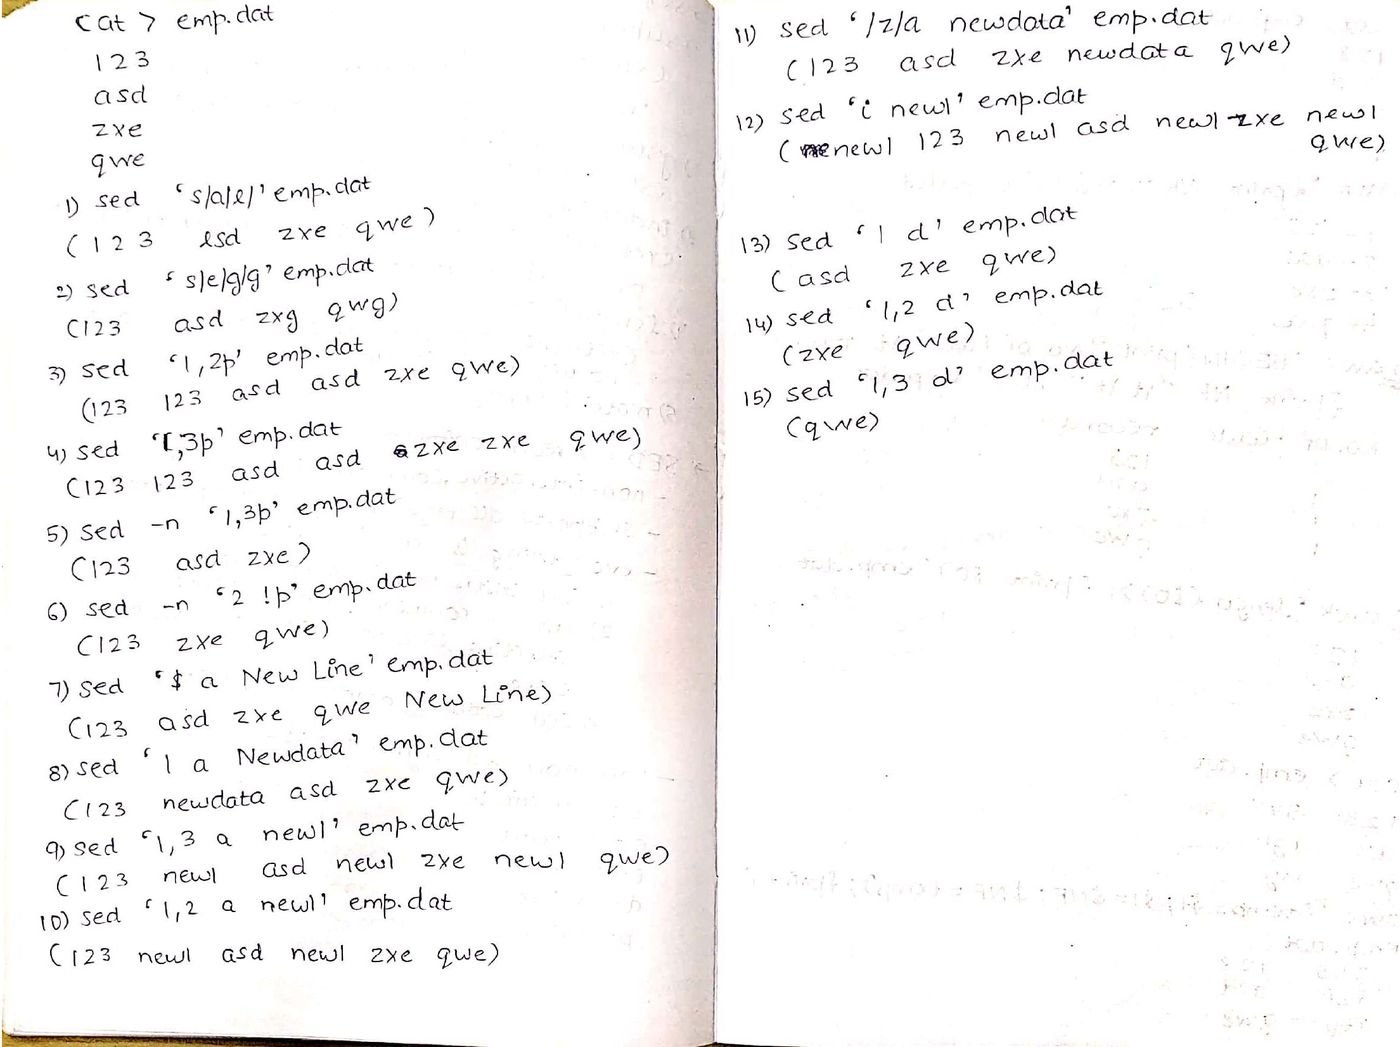 cat > emp.dat
123
asd
zxe
qwe
1) sed 's/a/e/' emp.dat
(123 esd zxe qwe)
2) sed 's/e/g/g' emp.dat
(123 asd zxg qwg)
3) sed '1,2p' emp.dat
(123 123 asd asd zxe qwe)
4) sed '1,3p' emp.dat
(123 123 asd asd zxe zxe qwe)
5) sed -n '1,3p' emp.dat
(123 asd zxe)
6) sed -n '2 !p' emp.dat
(123 zxe qwe)
7) sed '$ a New Line' emp.dat
(123 asd zxe qwe New Line)
8) sed '1 a Newdata' emp.dat
(123 newdata asd zxe qwe)
9) sed '1,3 a newl' emp.dat
(123 newl asd newl zxe newl qwe)
10) sed '1,2 a newl' emp.dat
(123 newl asd newl zxe qwe)
11) sed '/z/a newdata' emp.dat
(123 asd zxe newdata qwe)
12) sed 'i newl' emp.dat
(newl 123 newl asd newl zxe newl
qwe)
13) sed '1 d' emp.dat
(asd zxe qwe)
14) sed '1,2 d' emp.dat
(zxe qwe)
15) sed '1,3 d' emp.dat
(qwe)